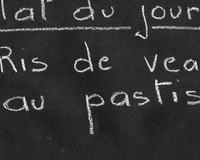 lat du jour
Ris de vea
au pastis